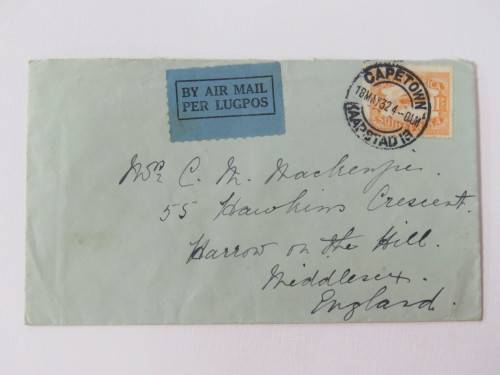 BY AIR MAIL
PER LUGPOS
CAPETOWN
18 MAY 32 4-
KAAPSTAD
Mrs C. M. Mackenzie.
55 Hawkins Crescent.
Harrow on the Hill.
Middlesex.
England.